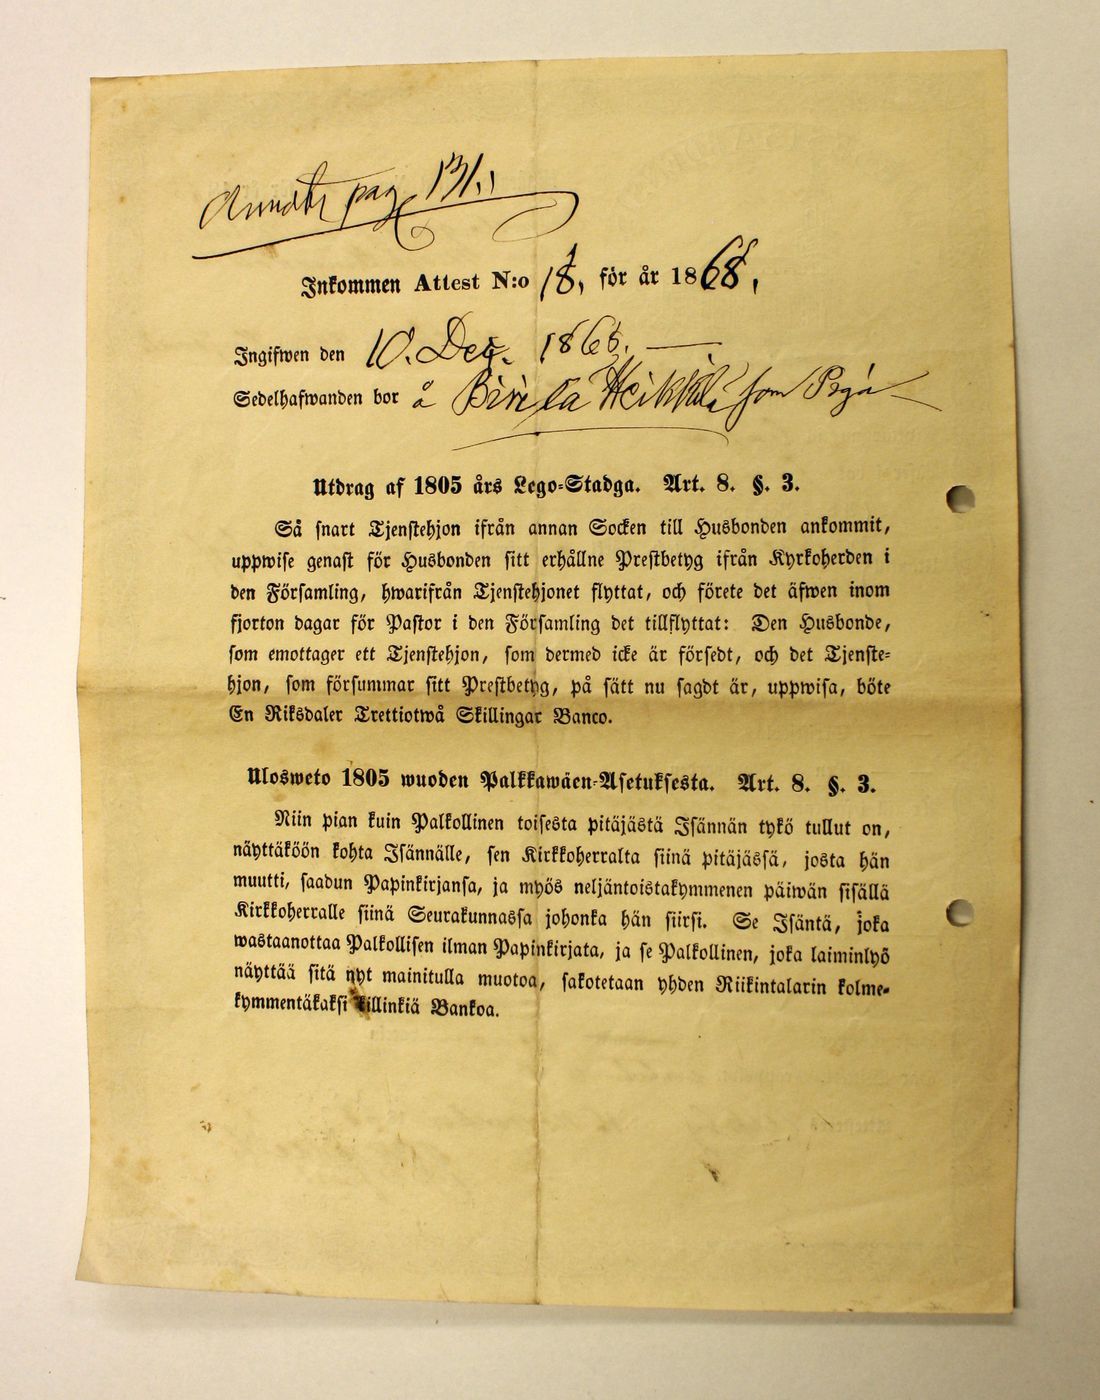 pag 131.
Inkommen Attest N:o 18, för år 1868.
Ingifwen den 10. Dec. 1868.
Sedelhafwanden bor å Heikkilä som
Utdrag af 1805 års Lego-Stadga. Art. 8. §. 3.
Så snart Tjenstehjon ifrån annan Socken till Husbonden ankommit,
uppwise genast för Husbonden sitt erhållne Prestbetyg ifrån Kyrkoherden i
den Församling, hwarifrån Tjenstehjonet flyttat, och förete det äfwen inom
fjorton dagar för Pastor i den Församling det tillflyttat: Den Husbonde,
som emottager ett Tjenstehjon, som dermed icke är försedt, och det Tjenste-
hjon, som försummar sitt Prestbetyg, på sätt nu sagdt är, uppwisa, böte
En Riksdaler Trettiotwå Skillingar Banco.
Ulosweto 1805 wuoden Palkkawäen-Asetuksesta. Art. 8. §. 3.
Niin pian kuin Palkollinen toisesta pitäjästä Isännän tykö tullut on,
näyttäköön kohta Isännälle, sen Kirkkoherralta siinä pitäjässä, josta hän
muutti, saadun Papinkirjansa, ja myös neljäntoistakymmenen päiwän sisällä
Kirkkoherralle siinä Seurakunnassa johonka hän siirsi. Se Isäntä, joka
wastaanottaa Palkollisen ilman Papinkirjata, ja se Palkollinen, joka laiminlyö
näyttää sitä nyt mainitulla muotoa, sakotetaan yhden Riikintalarin kolme-
kymmentäkaksi killinkiä Bankoa.